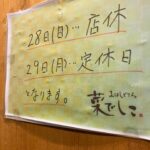 28日(日)…店休
29日(月)…定休日
となります。
菜でしこ